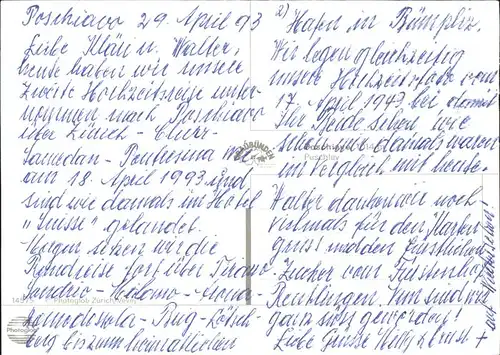 Poschiavo 29. April 93
Liebe Kläri u. Walter,
heute haben wir unsere
zweite Hochzeitsreise unter-
nommen nach Poschiavo
über Zürich Chur-
Samedan - Pontresina wie
am 18. April 1943. Und
sind wie damals im Hotel
"Suisse" gelandet.
Morgen setzen wir die
Rundreise fort über Tirano-
Sondrio - Milano -
Domodossola - Brig - Lötsch-
berg bis zum heimatlichen
2) Hafen in Bümpliz.
Wir legen gleichzeitig
unsere Hochzeitsfoto vom
17. April 1943, bei damit
Ihr Beide sehen wie
wir damals waren
im Vergleich mit heute.
Walter danken wir noch
vielmals für den Karten
gruss mit den
Zucker vom
Reutlingen. Nun sind wir
ganz süss geworden!
Liebe Grüsse Willy +
GRAUBÜNDEN
Puschlav
Photoglob Zürich/Vevey
Photoglob